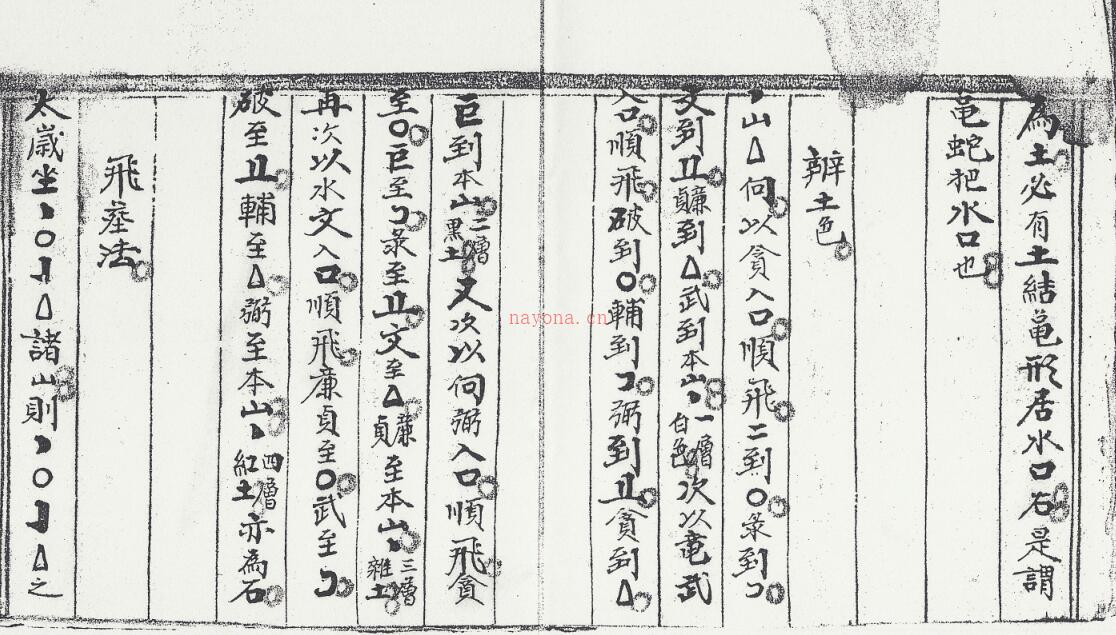 為土必有土結亀形居水口石是謂
亀蛇把水口也
辨土色
丶山△向以貪入口順飛二到〇彔到コ
文到 廉貞到△武到本山丶一層白色次以竜武
入口順飛破到〇輔到コ弼到 貪到△
巨到本山二層黑土又次以向弼入口順飛貪
至〇巨至コ彔至 文至△廉貞至本山丶三層雜土
再次以水文入口順飛廉貞至〇武至コ
破至 輔至△弼至本山丶四層紅土亦為石
飛 法
太歲坐丶〇 △諸山則丶〇 △之
nayona.cn